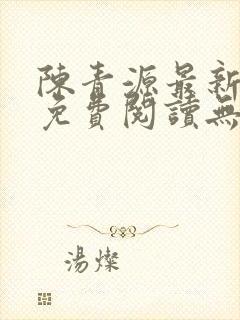 陳青源最新
免費閱讀無
湯燦